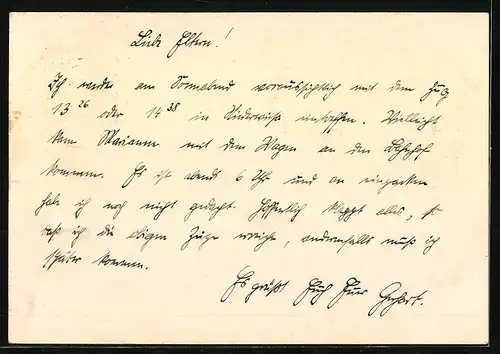 Liebe Eltern!
Ich werde am Sonnabend voraussichtlich mit dem Zug
13 26 oder 14 38 in eintreffen. Vielleicht
kann Marianne mit dem Wagen an den Bahnhof
kommen. Es ist abends 6 Uhr und an einpacken
habe ich noch nicht gedacht. Hoffentlich klappt alles, so
daß ich die obigen Züge erreiche, andernfalls muß ich
später kommen.
Es grüßt Euch Euer